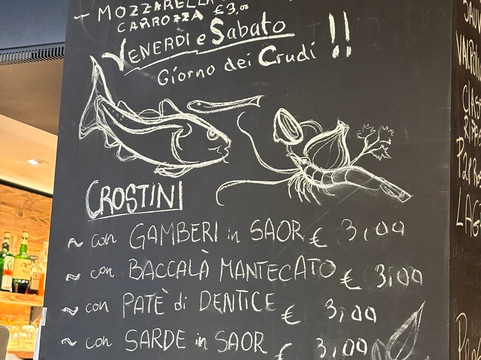 - MOZZARELLA
CARROZZA €3,00
VENERDÌ e SABATO !!
Giorno dei Crudi
CROSTINI
~ con GAMBERI in SAOR € 3,00
~ con BACCALÀ MANTECATO € 3,00
~ con PATÈ di DENTICE € 3,00
~ con SARDE in SAOR € 3,00